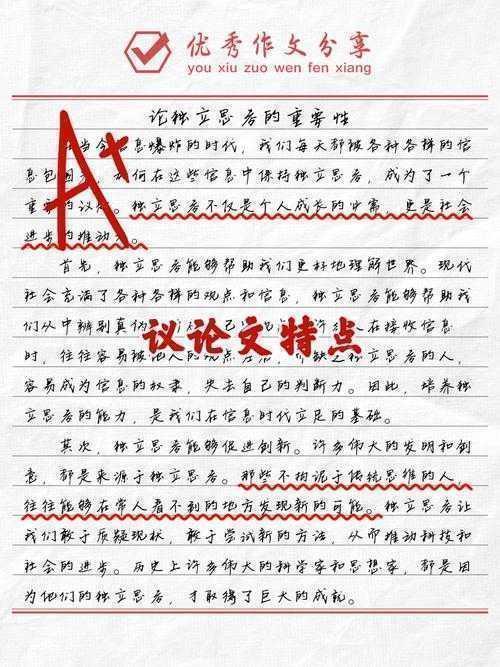 优秀作文分享
you xiu zuo wen fen xiang
A+
论独立思考的重要性
当今信息爆炸的时代，我们每天都被各种各样的信
息包围，如何在这些信息中保持独立思考，成为了一个
重要的议题。独立思考不仅是个人成长的必需，更是社会
进步的推动力。
首先，独立思考能够帮助我们更好地理解世界。现代
社会充满了各种各样的观点和信息，独立思考能够帮助我
们从中辨别真伪
己
许
人在接收信息
议论文特点
时，往往容易被他人的观点左右，而缺乏独立思考的人，
容易成为信息的奴隶，失去自己的判断力。因此，培养独
立思考的能力，是我们在信息时代立足的基础。
其次，独立思考能够促进创新。许多伟大的发明和创
意，都是来源于独立思考。那些不拘泥于传统思维的人，
往往能够在常人看不到的地方发现新的可能。独立思考让
我们敢于质疑现状，敢于尝试新的方法，从而推动科技和
社会的进步。历史上许多伟大的科学家和思想家，都是因
为他们的独立思考，才取得了巨大的成就。